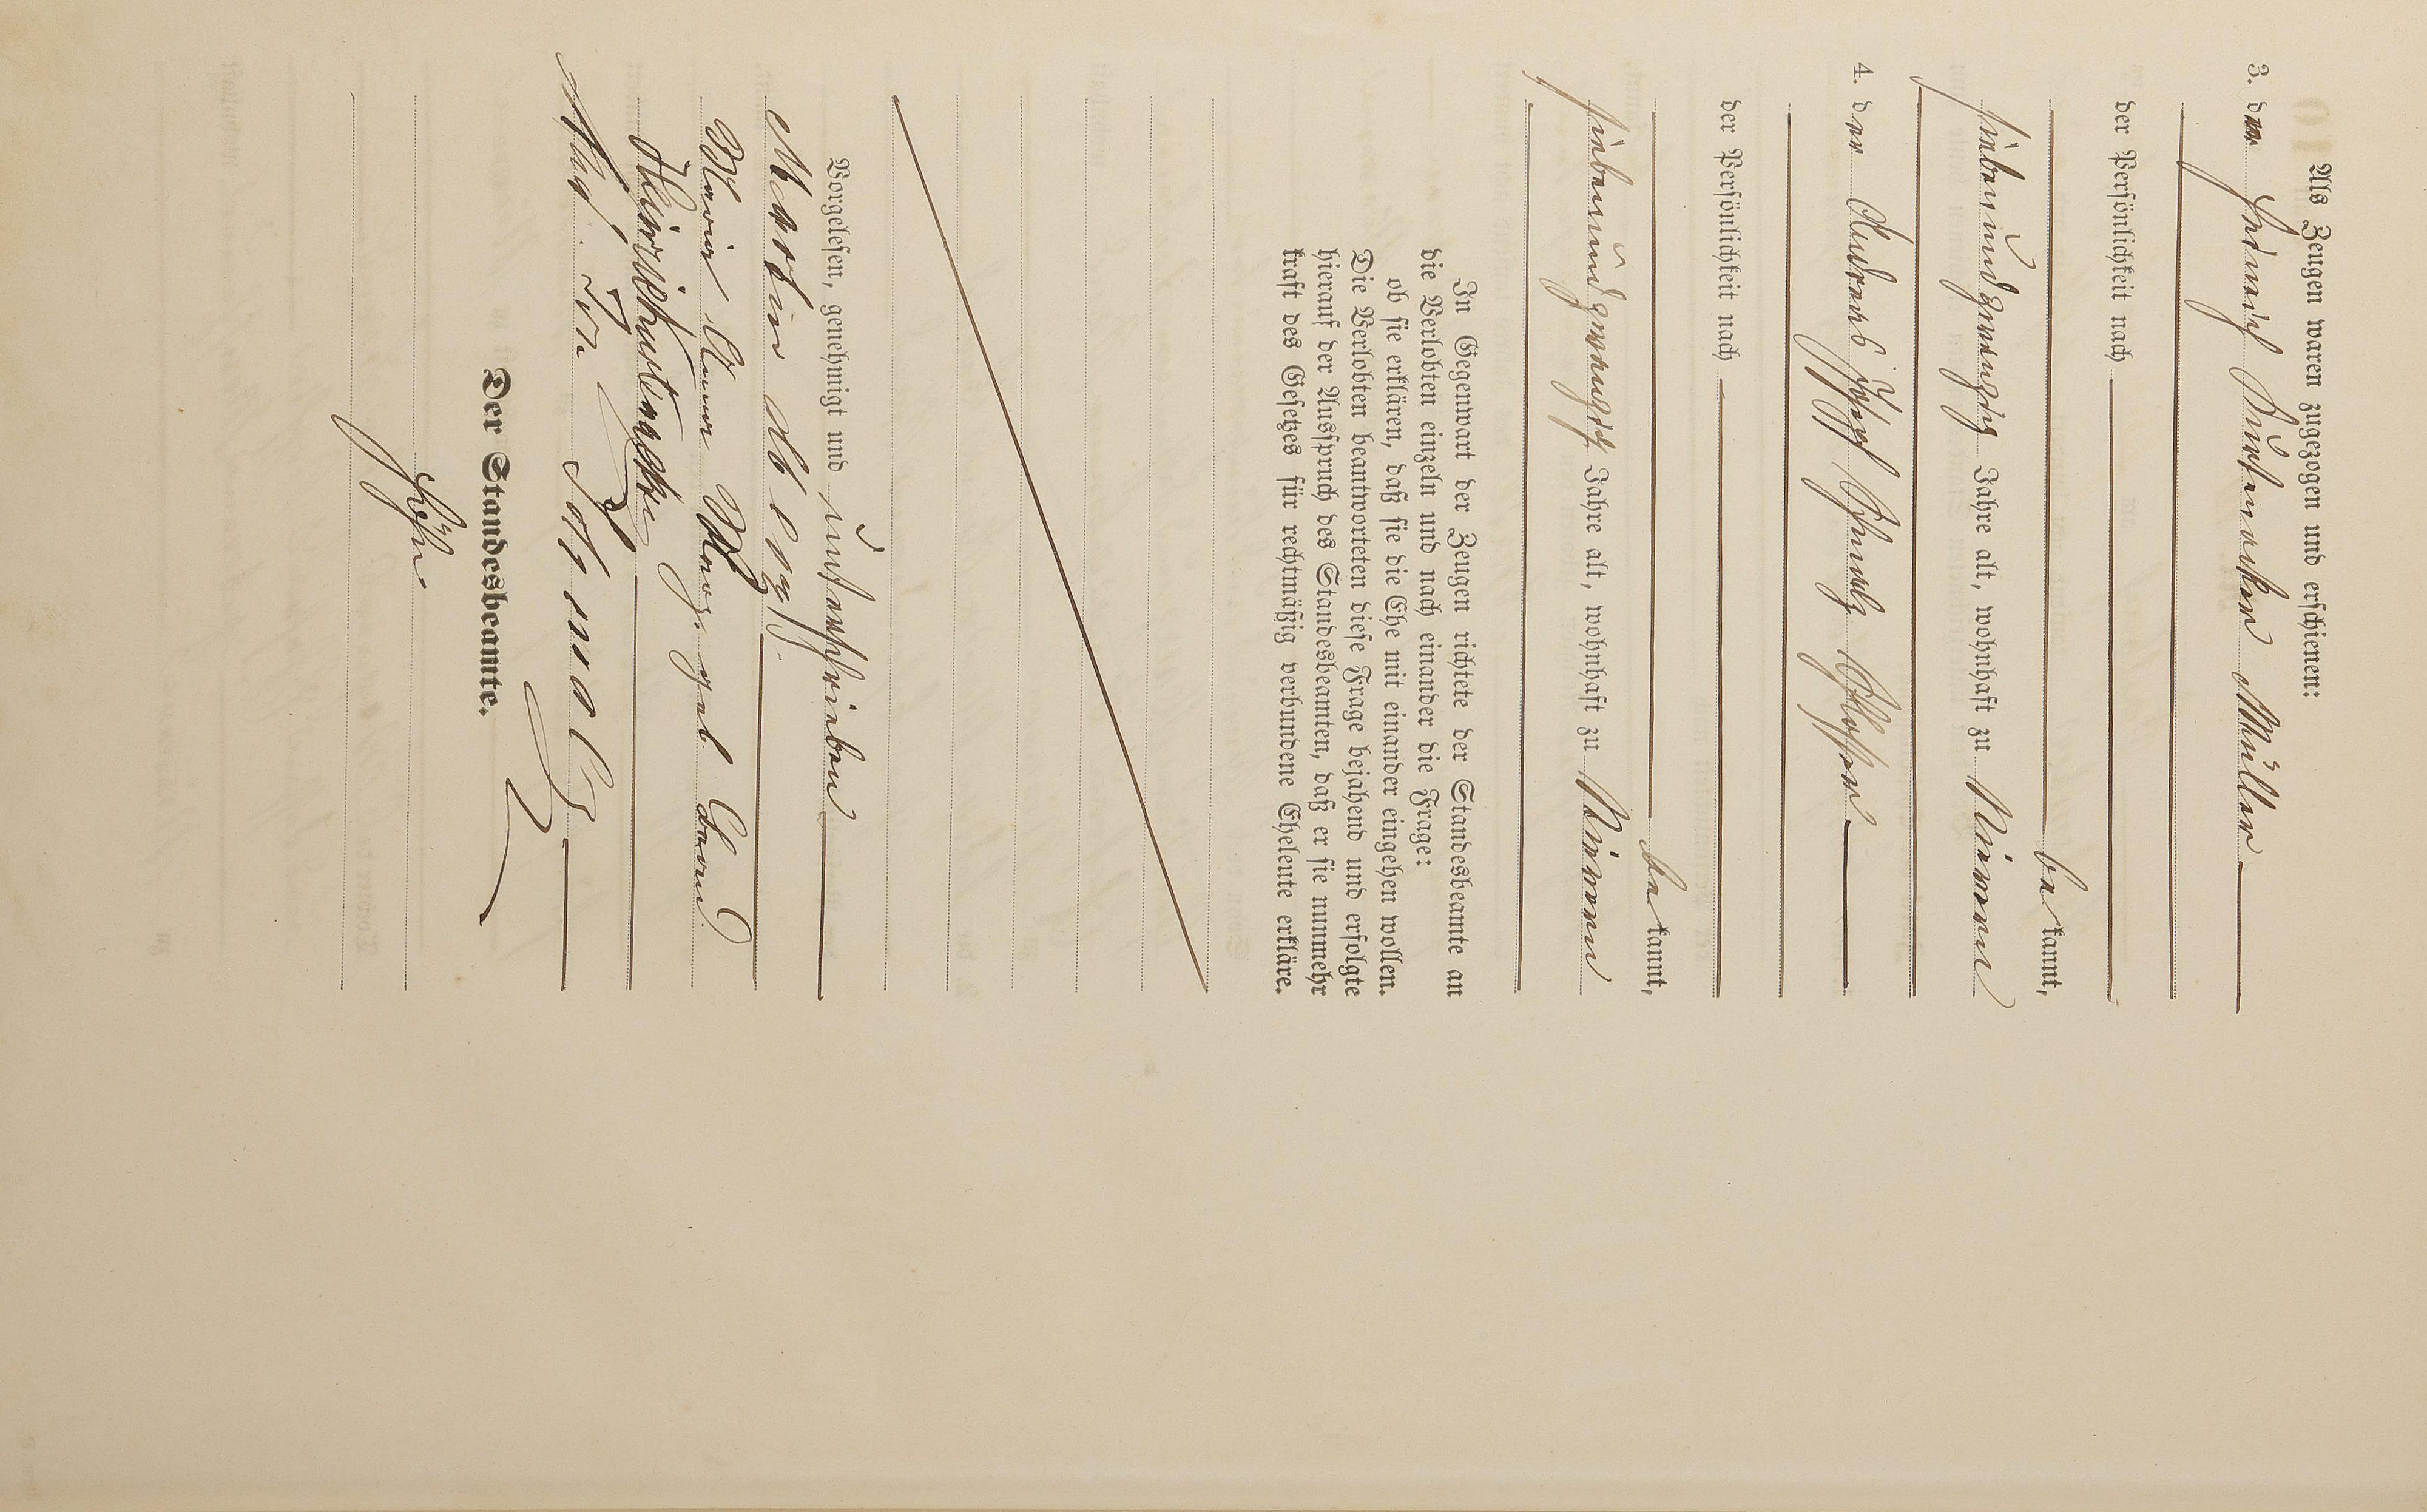 Als Zeugen waren zugezogen und erschienen:
3. der Heinrich Rutenacker Müller
der Persönlichkeit nach
bekannt,
siebenundzwanzig Jahre alt, wohnhaft zu
4. der Andreas Josef Schmalz Schlosser
der Persönlichkeit nach
bekannt,
siebenundzwanzig Jahre alt, wohnhaft zu
In Gegenwart der Zeugen richtete der Standesbeamte an
die Verlobten einzeln und nach einander die Frage:
ob sie erklären, daß sie die Ehe mit einander eingehen wollen.
Die Verlobten beantworteten diese Frage bejahend und erfolgte
hierauf der Ausspruch des Standesbeamten, daß er sie nunmehr
kraft des Gesetzes für rechtmäßig verbundene Eheleute erkläre.
Vorgelesen, genehmigt und unterschrieben
Martin
Maria Anna geb
And. Jos. Schmalz
Der Standesbeamte.